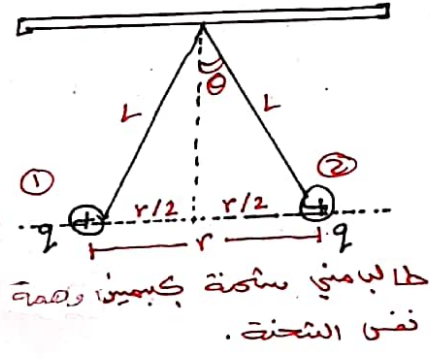 θ
L L
① ②
r/2 r/2
q r q
طالبا مني شحنة كجسمين وهمة
نفس الشحنة .